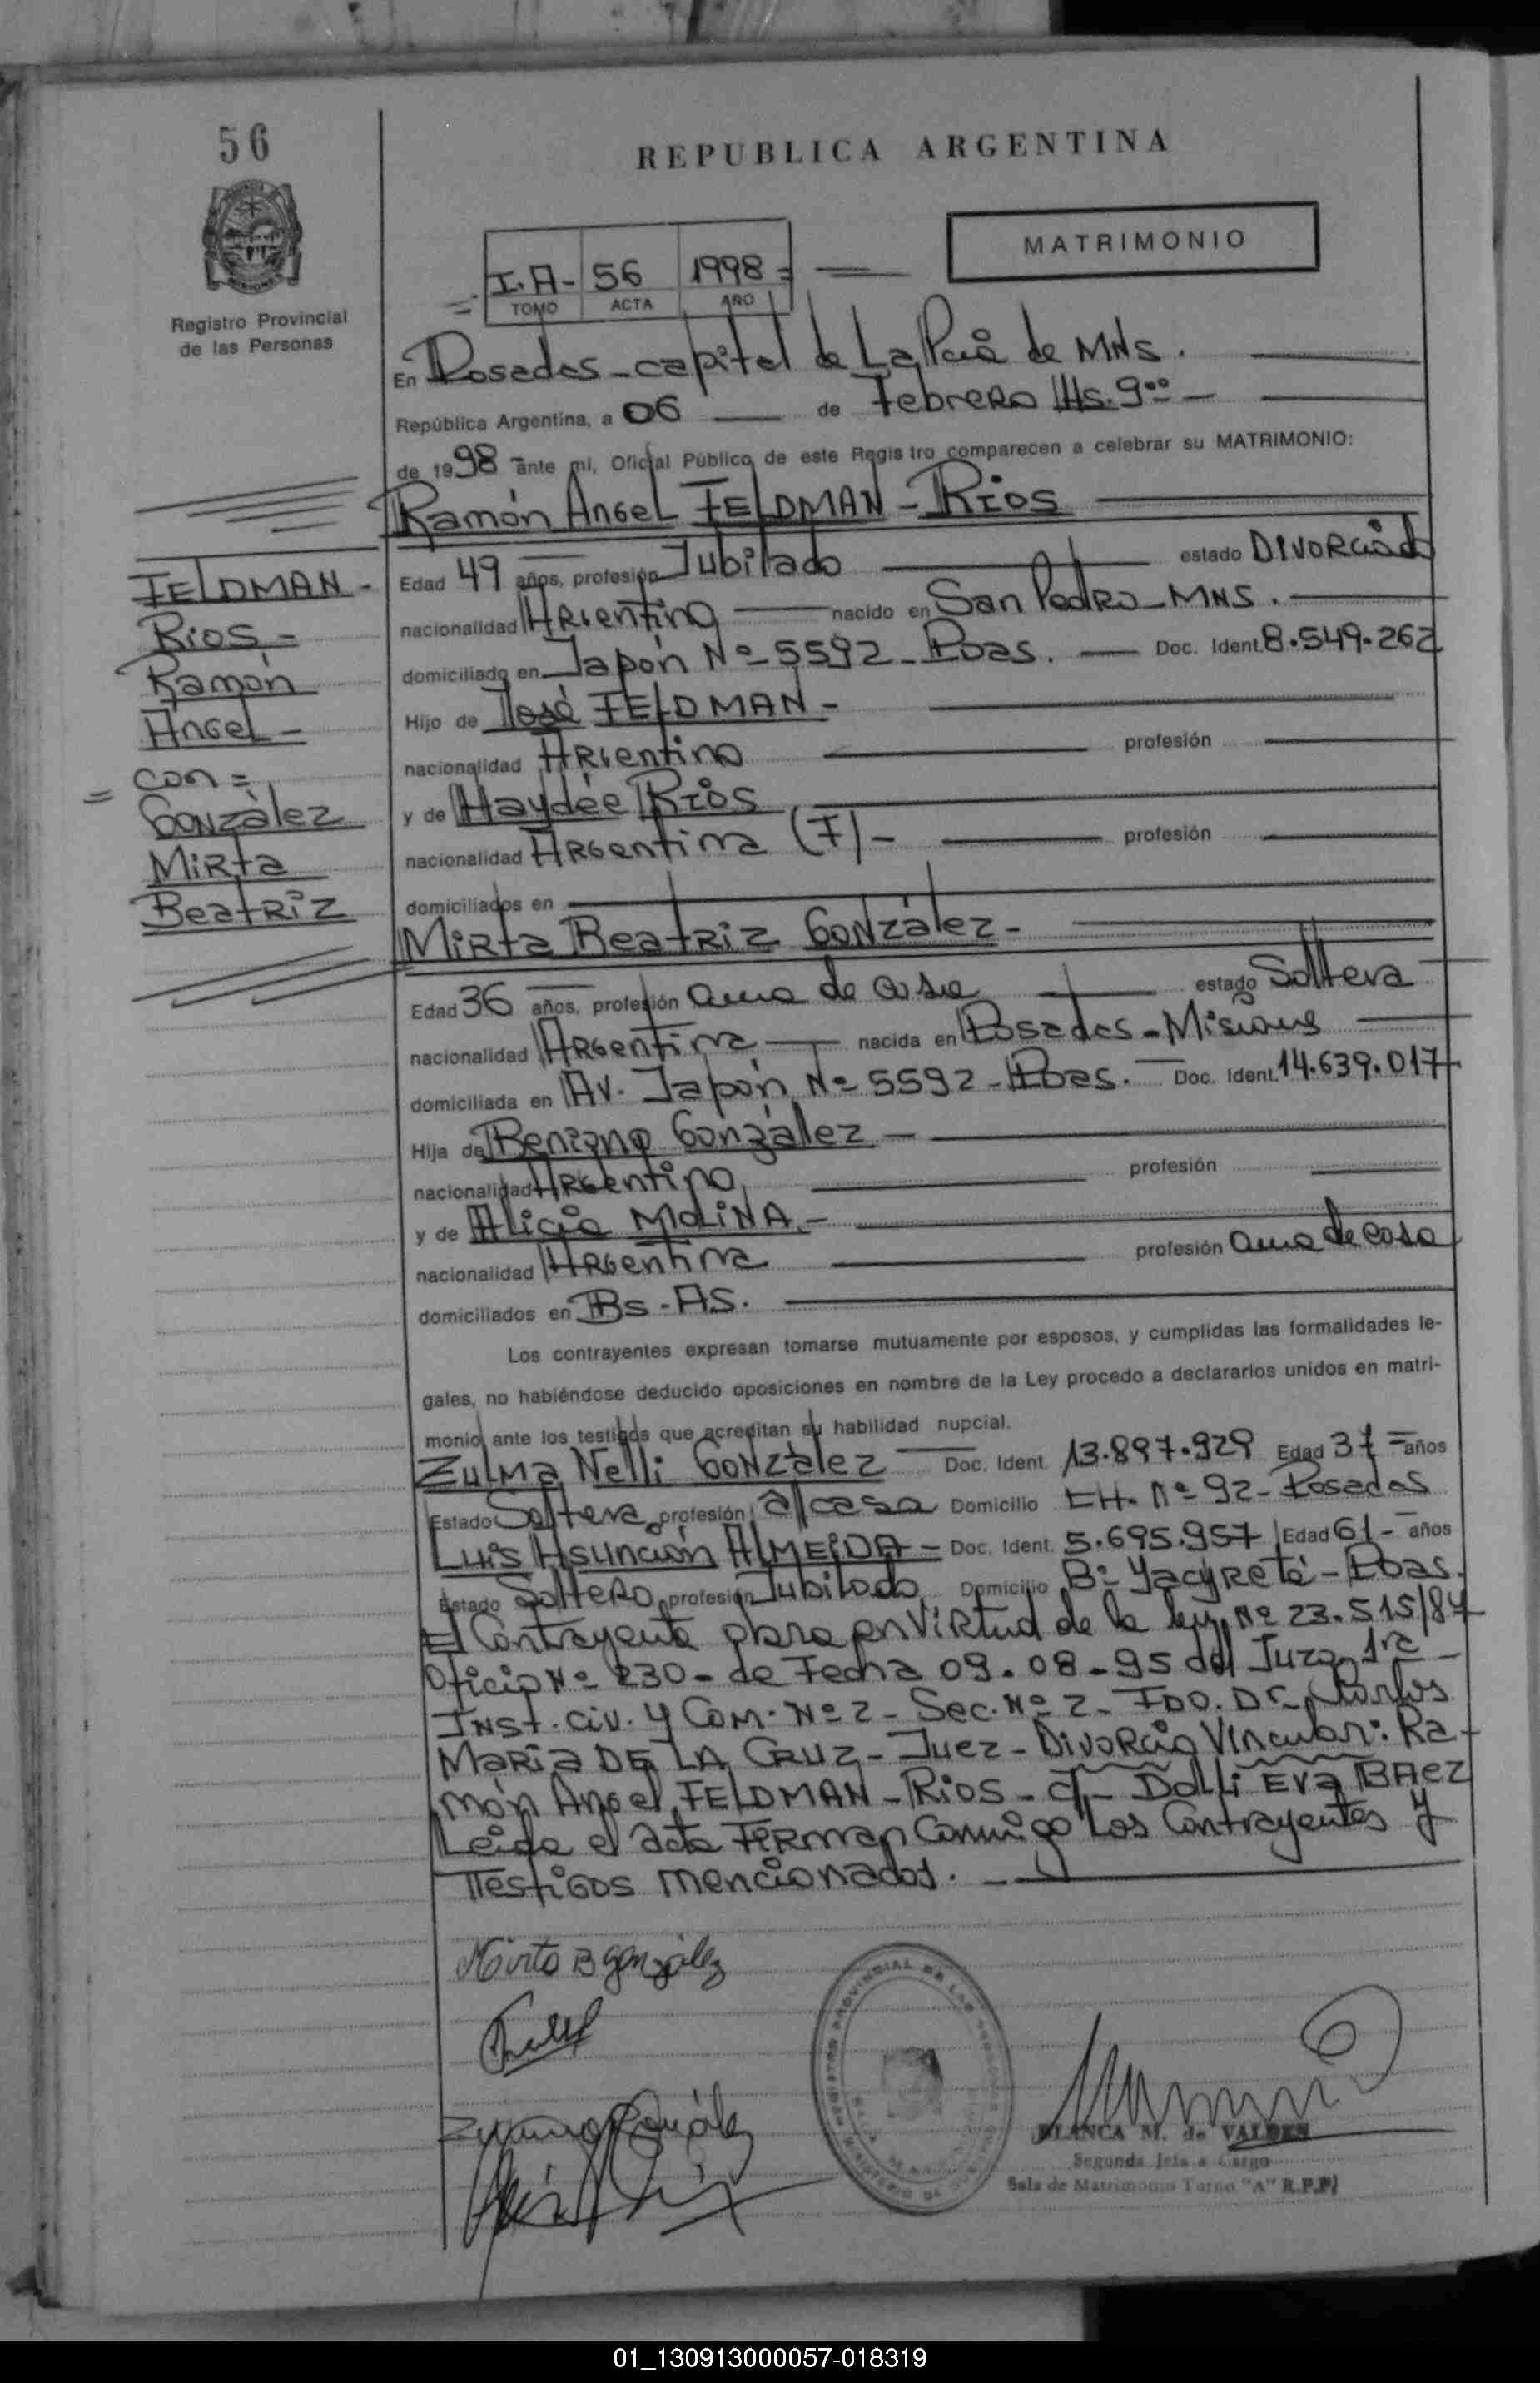 56
REPUBLICA ARGENTINA
MATRIMONIO
I.A- 56 1998=
TOMO ACTA AÑO
Registro Provincial
de las Personas
En Posadas-capital de La Pcia de MNS.
República Argentina, a 06 de Febrero Hs. 9:00
de 1998 ante mi, Oficial Público de este Registro comparecen a celebrar su MATRIMONIO:
Ramón Angel FELDMAN - Rios
FELDMAN -
Rios -
Ramón
Angel -
= con =
González
Mirta
Beatriz
Edad 49 años, profesión Jubilado estado Divorciado
nacionalidad Argentino nacido en San Pedro - MNS.
domiciliado en Japón Nº 5592 - Pdas. Doc. Ident. 8.549.262
Hijo de José FELDMAN -
nacionalidad Argentino profesión
y de Haydée Rios
nacionalidad Argentina (F) - profesión
domiciliados en
Mirta Beatriz González -
Edad 36 años, profesión ama de casa estado Soltera
nacionalidad Argentina nacida en Posadas - Misiones
domiciliada en Av. Japón Nº 5592 - Pdas. Doc. Ident. 14.639.017
Hija de Benigno González -
nacionalidad Argentino profesión
y de Alicia MOLINA -
nacionalidad Argentina profesión ama de casa
domiciliados en Bs - AS.
Los contrayentes expresan tomarse mutuamente por esposos, y cumplidas las formalidades le-
gales, no habiéndose deducido oposiciones en nombre de la Ley procedo a declararlos unidos en matri-
monio ante los testigos que acreditan su habilidad nupcial.
Zulma Nelli González Doc. Ident. 13.897.929 Edad 37 años
Estado Soltera profesión a/casa Domicilio CH. Nº 92 - Posadas
Luis Asunción ALMEIDA - Doc. Ident. 5.695.957 Edad 61 - años
Estado Soltero profesión Jubilado Domicilio Bº Yacyretá - Pdas.
El Contrayente obra en virtud de la ley Nº 23.515/87
Oficio Nº 230 - de Fecha 09.08.95 del Juzg. 1ra
Inst. Civ. y Com. Nº 2 - Sec. Nº 2 - FDO. Dr. Carlos
María DE LA CRUZ - Juez - Divorcio Vincular: Ra-
món Angel FELDMAN - Rios - c/- Dolli Eva BAez
Leida el acta Firman Conmigo Los Contrayentes y
Testigos mencionados.
Mirta B González
BLANCA M. de VALDES
Segunda Jefa a Cargo
Sala de Matrimonio Turno "A" R.P.P.
01_130913000057-018319